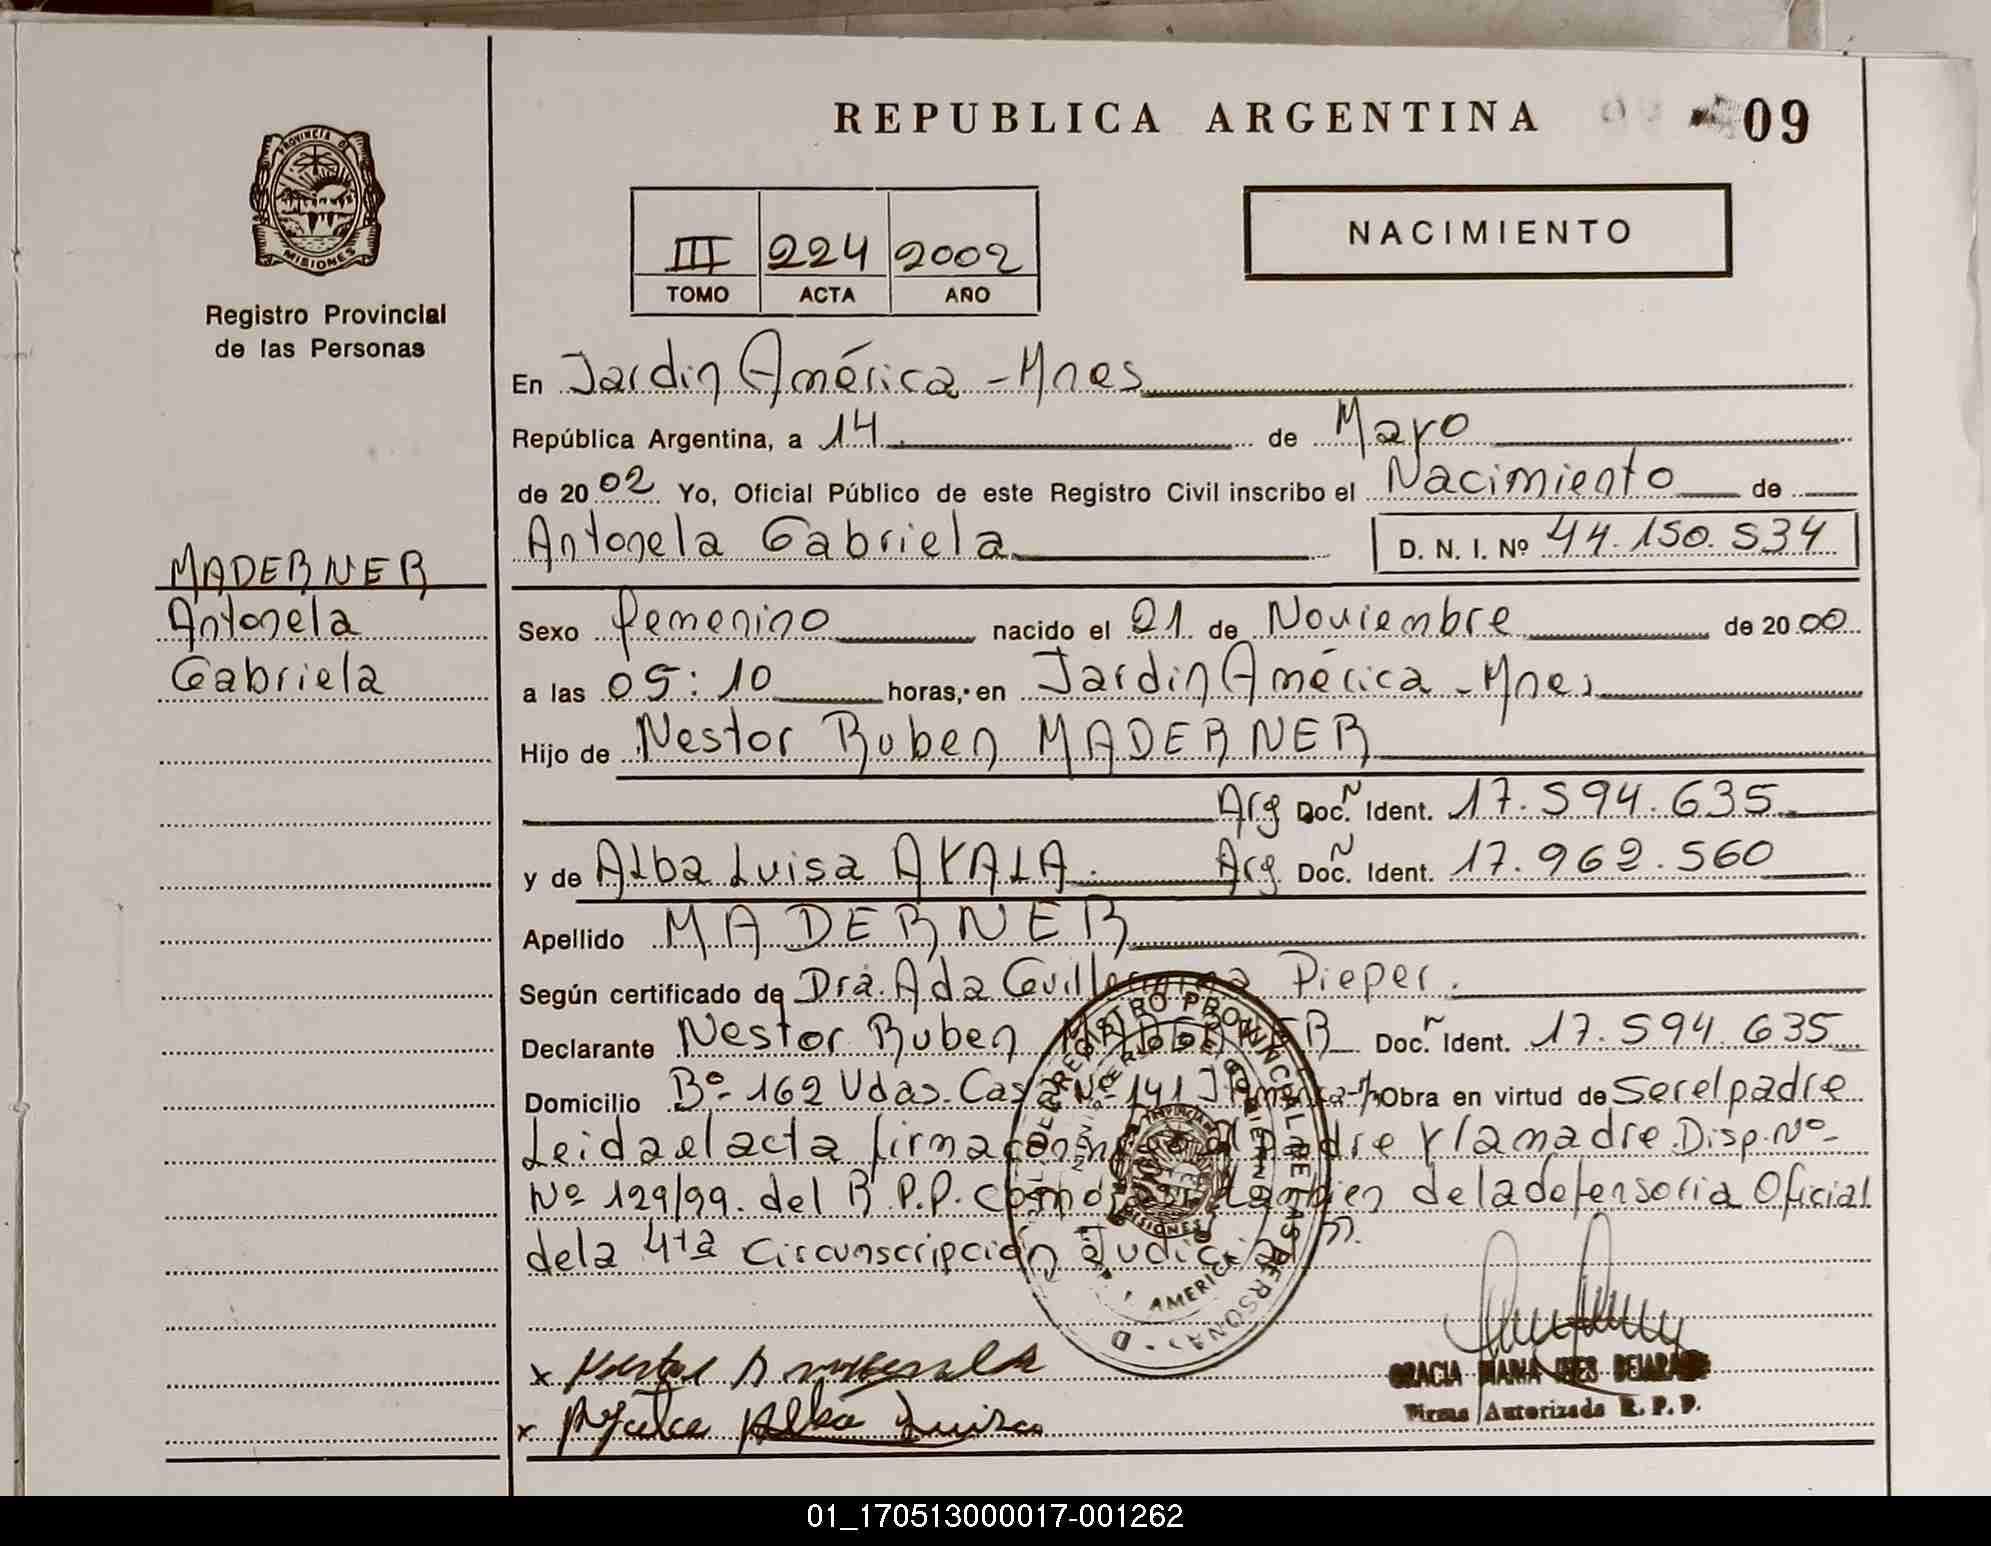 REPUBLICA ARGENTINA
09
PROVINCIA D
MISIONES
Registro Provincial
de las Personas
NACIMIENTO
III 224 2002
TOMO ACTA AÑO
En Jardin América - Mnes
República Argentina, a 14 de Mayo
de 2002 Yo, Oficial Público de este Registro Civil inscribo el Nacimiento de
Antonela Gabriela D. N. I. Nº 44.150.534
MADERNER
Antonela
Gabriela
Sexo femenino nacido el 21 de Noviembre de 2000
a las 05:10 horas, en Jardin América - Mnes
Hijo de Nestor Ruben MADERNER
Arg Doc. N Ident. 17.594.635
y de Alba Luisa AYALA. Arg Doc. N Ident. 17.962.560
Apellido MADERNER
Según certificado de Dra. Ada Guillermina Pieper.
Declarante Nestor Ruben MADERNER Doc. n Ident. 17.594.635
Domicilio Bº 162 Vdas. Casa Nº 141 Obra en virtud de Ser el padre
Leida el acta firma el padre y la madre. Disp. Nº
Nº 129/99. del R.P.P. como tambien de la defensoria Oficial
de la 4ta Circunscripción Judicial
REGISTRO PROVINCIAL DE LAS PERSONAS
MISIONES
AMERICA
x
x Ayala Alba Luisa
GRACIA MARIA INES BEJARANO
Firma Autorizada R. P. P.
01_170513000017-001262